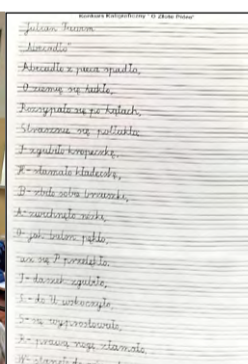 Konkurs Kaligraficzny "O Złote Pióro"
Julian Tuwim
„Abecadło”
Abecadło z pieca spadło,
O ziemię się tłukło,
Rozsypało się po kątach,
Strasznie się potłukło:
I - zgubiło kropeczkę,
H - złamało kładeczkę,
B - zbiło sobie brzuszki,
A - zwichnęło nóżki,
O - jak balon pękło,
aż się P przelękło,
T - daszek zgubiło,
L - do U wskoczyło,
S - się wyprostowało,
R - prawą nogę złamało,
W - stanęło do